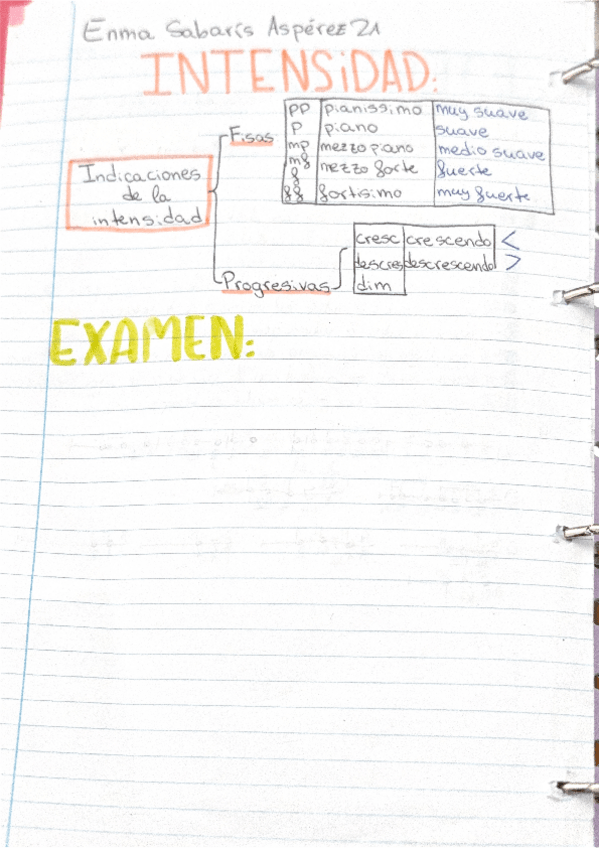 Enma Sabarís Aspérez 2A
INTENSiDAD:
Indicaciones
de la
intensidad
Fisas
pp pianissimo muy suave
p piano suave
mp mezzo piano medio suave
mf mezzo forte fuerte
f
ff fortisimo muy fuerte
Progresivas
cresc crescendo <
descres descrescendo >
dim
EXAMEN: